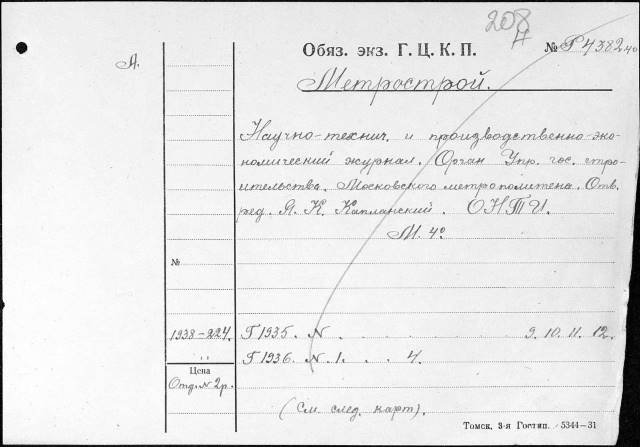 208
А.
Обяз. экз. Г. Ц. К. П. № Р4382 40
Метрострой.
Научно-технич. и производственно-эко-
номический журнал. Орган Упр. гос. стро-
ительства. Московского метрополитена. Отв.
ред. Я. К. Капланский. ОНТИ.
М. 4º
№
1938-224. Г 1935. N . . . . . . 9. 10. 11. 12.
" Г 1936. N. 1. . . 4.
Цена
Отд. N 2 р.
(См. след. карт).
Томск, 3-я Гостип. 5344-31